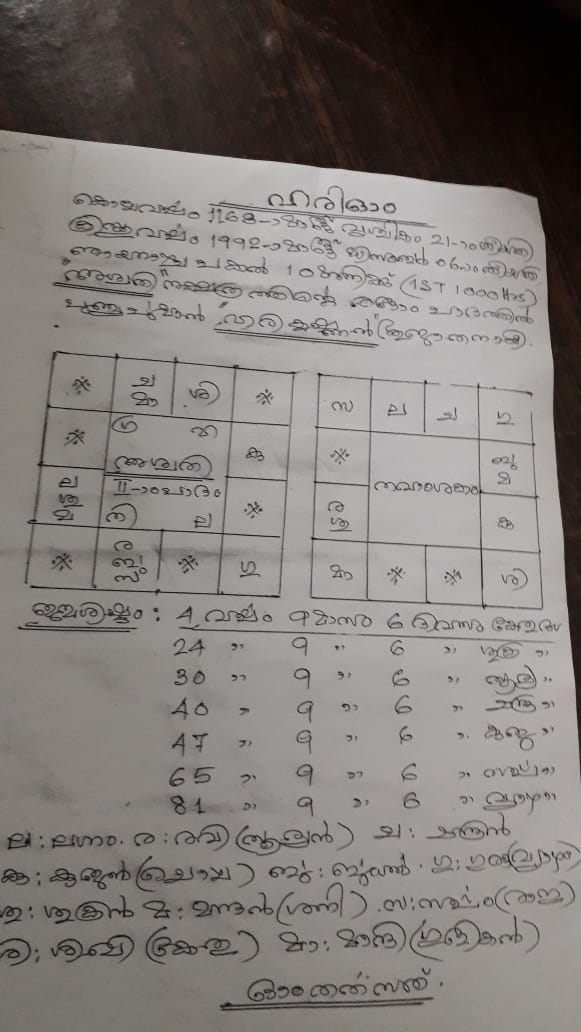 ഹരിഓം
കൊല്ലവർഷം 1168-ാമാണ്ട് വൃശ്ചികം 21-ാംതിയതി
ഇംഗ്ലവർഷം 1992-ാമാണ്ട് ഡിസംബർ 06-ാംതിയതി
ഞായറാഴ്ച പകൽ 10മണിക്ക് (IST 1000Hrs)
"അശ്വതി" നക്ഷത്രത്തിന്റെ രണ്ടാം പാദത്തിൽ
"ഹരി
※ ച ശി ※
മാ
※ ഗ്ര ഹ ക
അശ്വതി
ല II-ാംപാദം
ശു മ നി ല ※
※ ര ※ ഗു
ബു
സ
സ ല ച ഗു
※ ബു
മ
നവാംശകം
ര ശു ക
മാ ※ ※ ശി
: 4 വർഷം 9 മാസം 6 ദിവസം കേതുദശ
24 " 9 " 6 " ശുക്ര "
30 " 9 " 6 " ആദി "
40 " 9 " 6 " ചന്ദ്ര "
47 " 9 " 6 " കുജ "
65 " 9 " 6 " സർപ്പ "
81 " 9 " 6 " വ്യാഴ "
ല : ലഗ്നം. ര : രവി (ആദിത്യൻ) ച : ചന്ദ്രൻ
ക : കുജൻ (ചൊവ്വ) ബു : ബുധൻ. ഗു : ഗുരു (വ്യാഴം)
ശു : ശുക്രൻ മ : മന്ദൻ (ശനി). സ : സർപ്പം (രാഹു)
ശി : ശിഖി (കേതു) മാ : മാന്ദി (ഗുളികൻ)
ഓംതത് സത്.